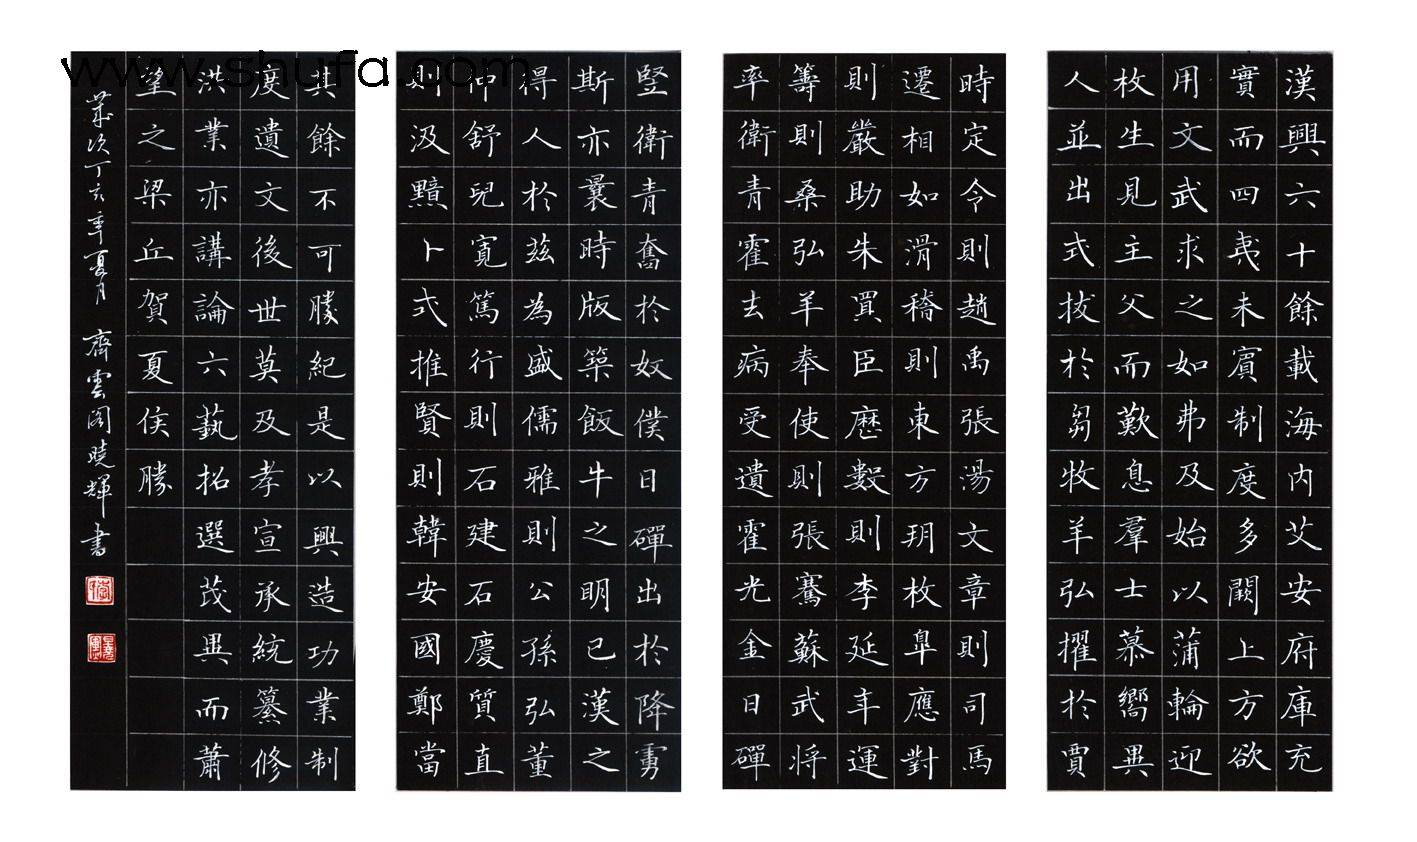 漢興六十餘載海內艾安府庫充
實而四夷未賓制度多闕上方欲
用文武求之如弗及始以蒲輪迎
枚生見主父而歎息羣士慕嚮異
人並出式拔於芻牧羊弘擢於賈
竪衛青奮於奴僕日磾出於降虜
斯亦曩時版築飯牛之明已漢之
得人於茲為盛儒雅則公孫弘董
仲舒兒寬篤行則石建石慶質直
則汲黯卜式推賢則韓安國鄭當
時定令則趙禹張湯文章則司馬
遷相如滑稽則東方朔枚皋應對
則嚴助朱買臣歷數則李延年運
籌則桑弘羊奉使則張騫蘇武將
率衛青霍去病受遺霍光金日磾
其餘不可勝紀是以興造功業制
度遺文後世莫及孝宣承統纂修
洪業亦講論六藝招選茂異而蕭
望之梁丘賀夏侯勝
歲次丁亥年夏月 齊雲閣曉輝書
www.shufa.com